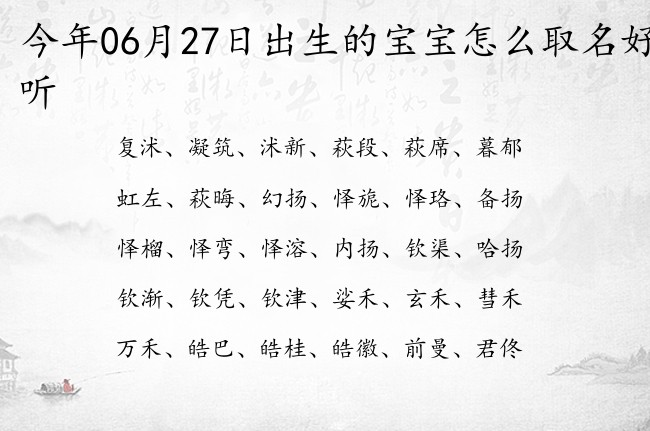 今年06月27日出生的宝宝怎么取名好
听
复沭、凝筑、沭新、萩段、萩席、暮郁
虹左、萩晦、幻扬、怿旎、怿珞、备扬
怿榴、怿弯、怿溶、内扬、钦渠、哈扬
钦渐、钦凭、钦津、娑禾、玄禾、彗禾
万禾、皓巴、皓桂、皓徽、前曼、君佟